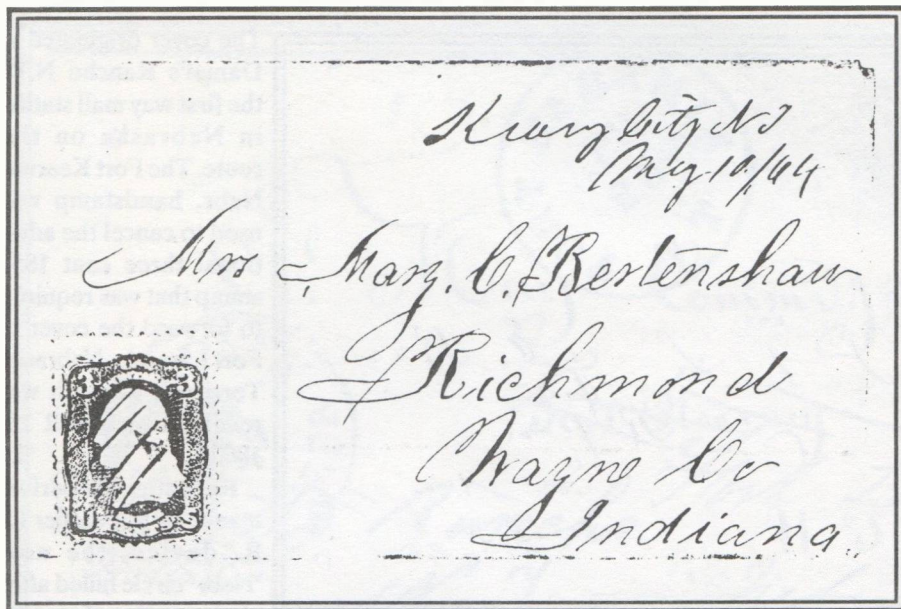 Kearny City N T
May 10/64
Mrs. Mary. C. Bertenshaw
Richmond
Wayne Co
Indiana.
3 3
U S